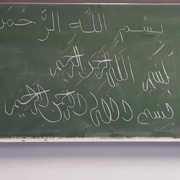 بسم اللّه الرَّحمن
بسم الله الرحمن الرحيم
بسم الله الرحمن الرحيم